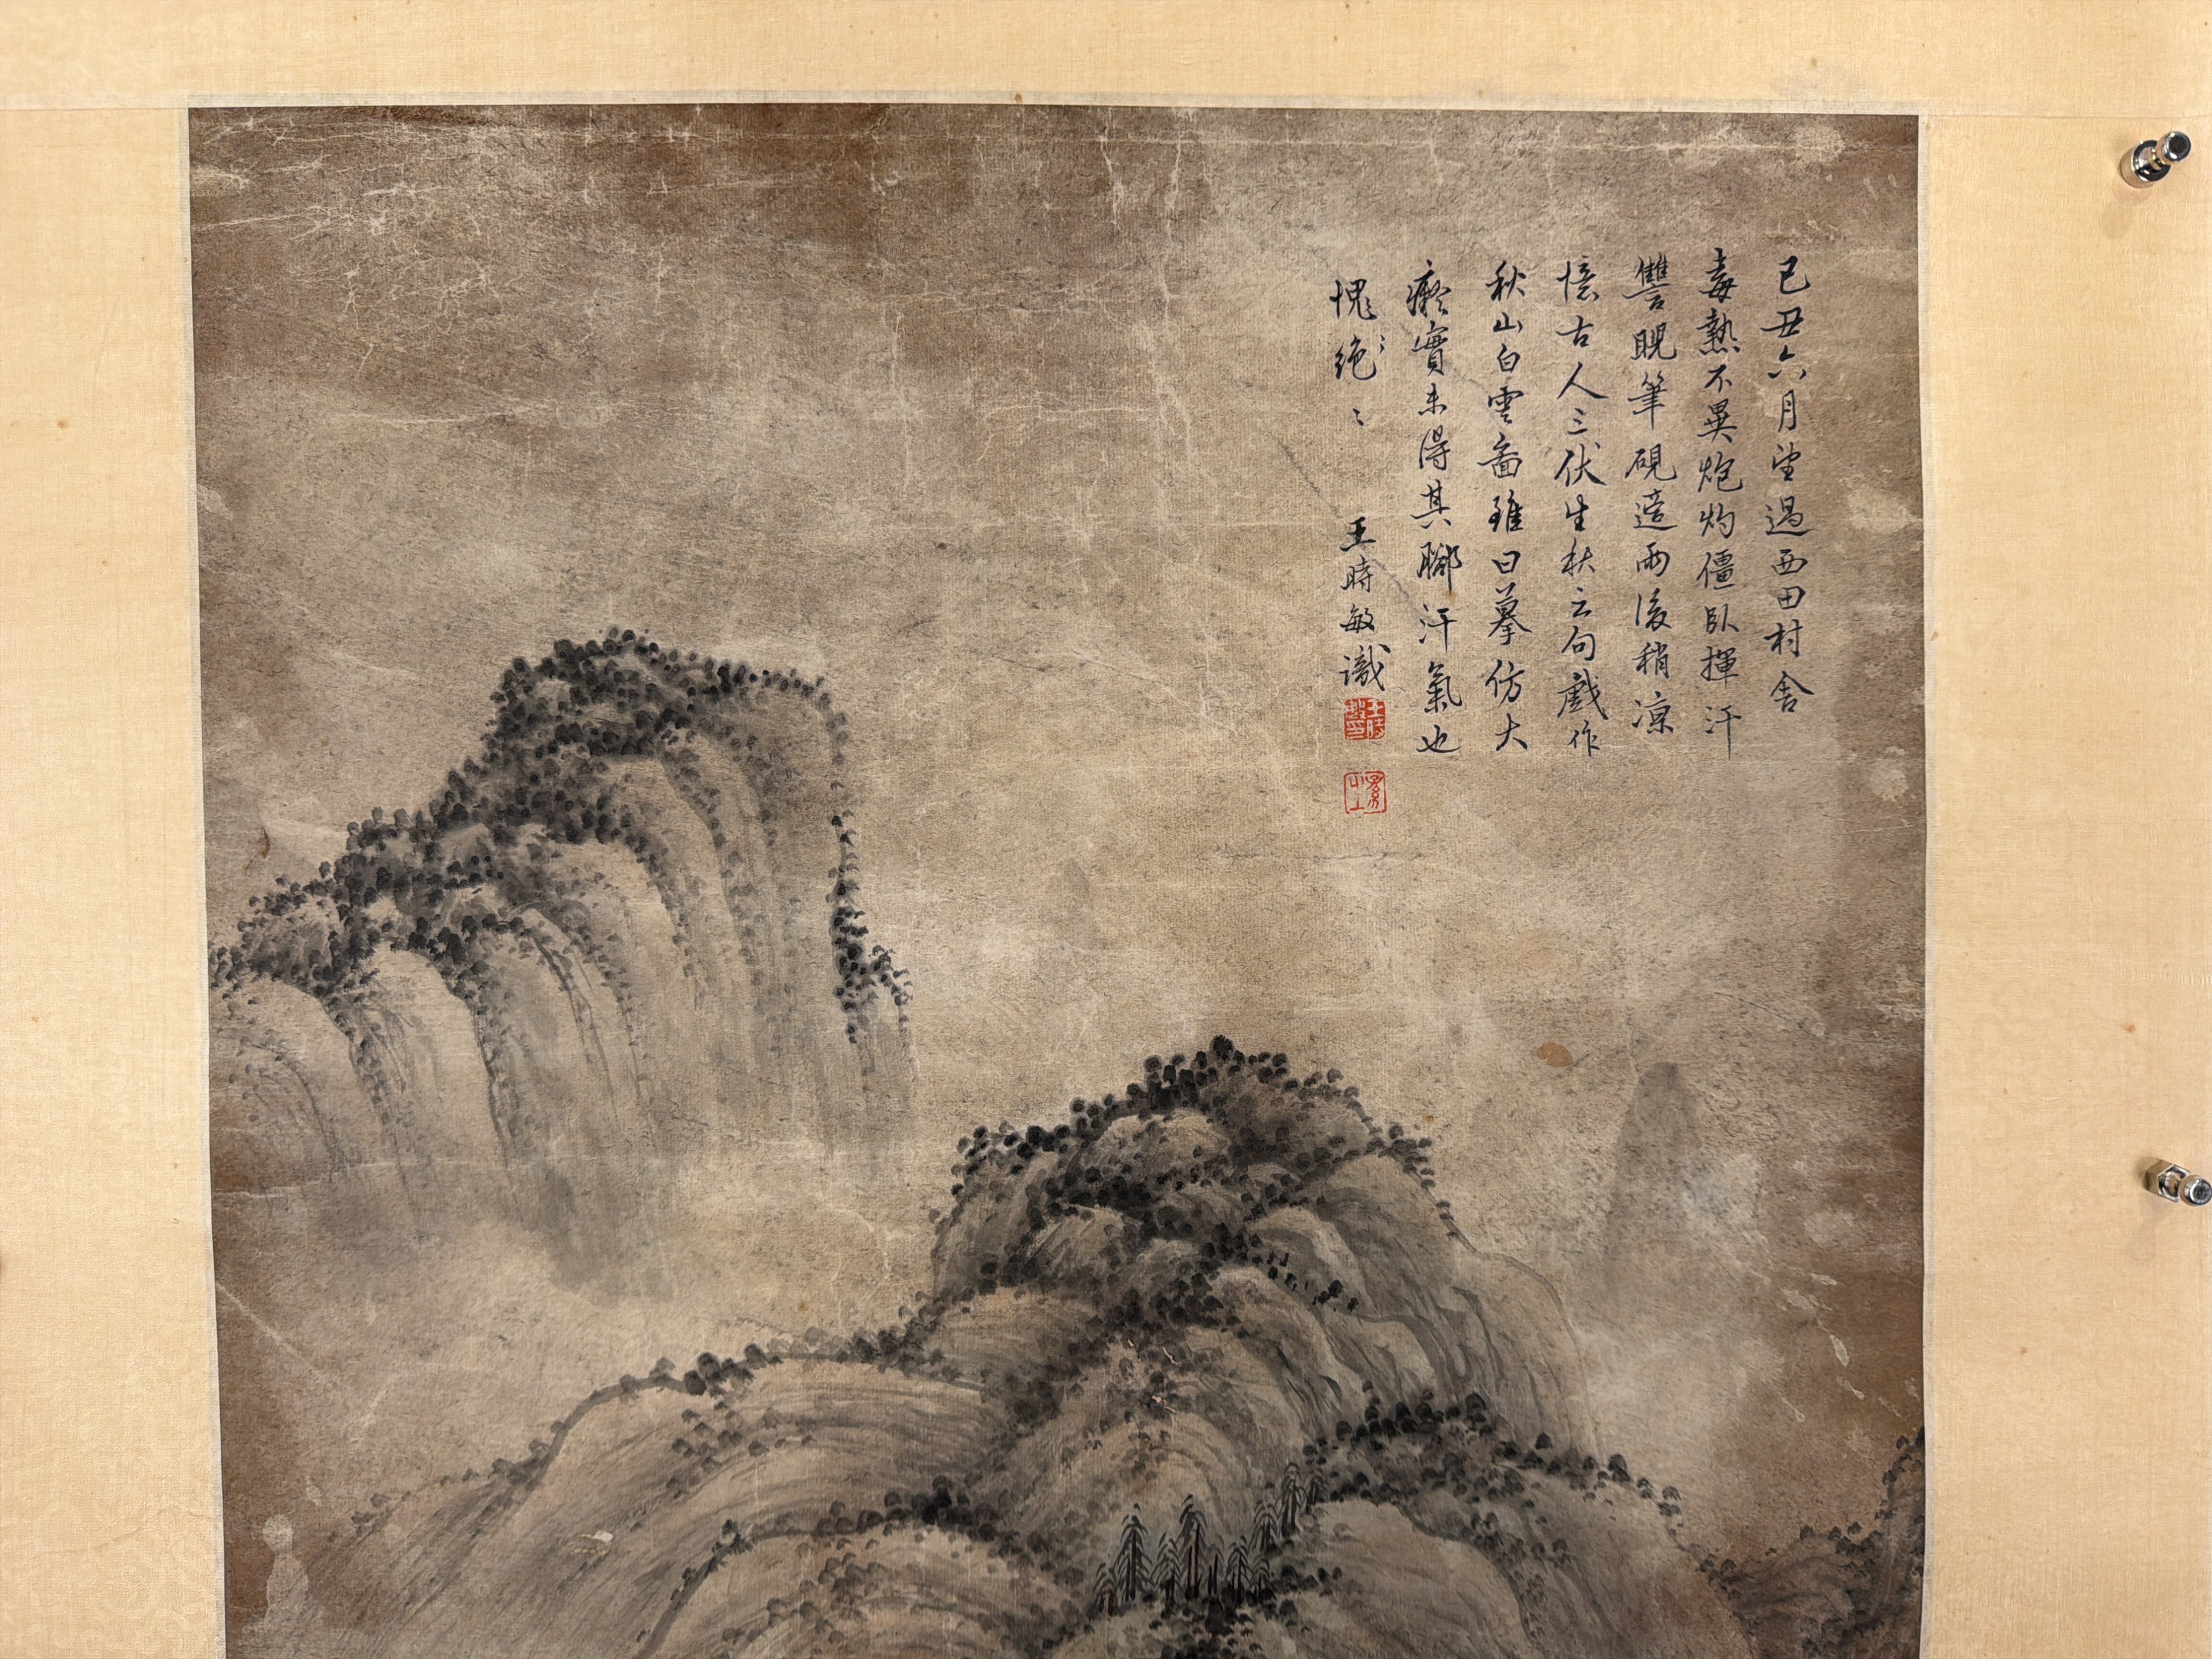 己丑六月望過西田村舍
毒熱不異炮灼僵臥揮汗
讐睍筆硯適雨後稍涼
憶古人三伏生秋之句戲作
秋山白雲啚雖曰摹仿大
癡實未得其腳汗氣也
愧〻絶〻
王時敏識
王時敏印